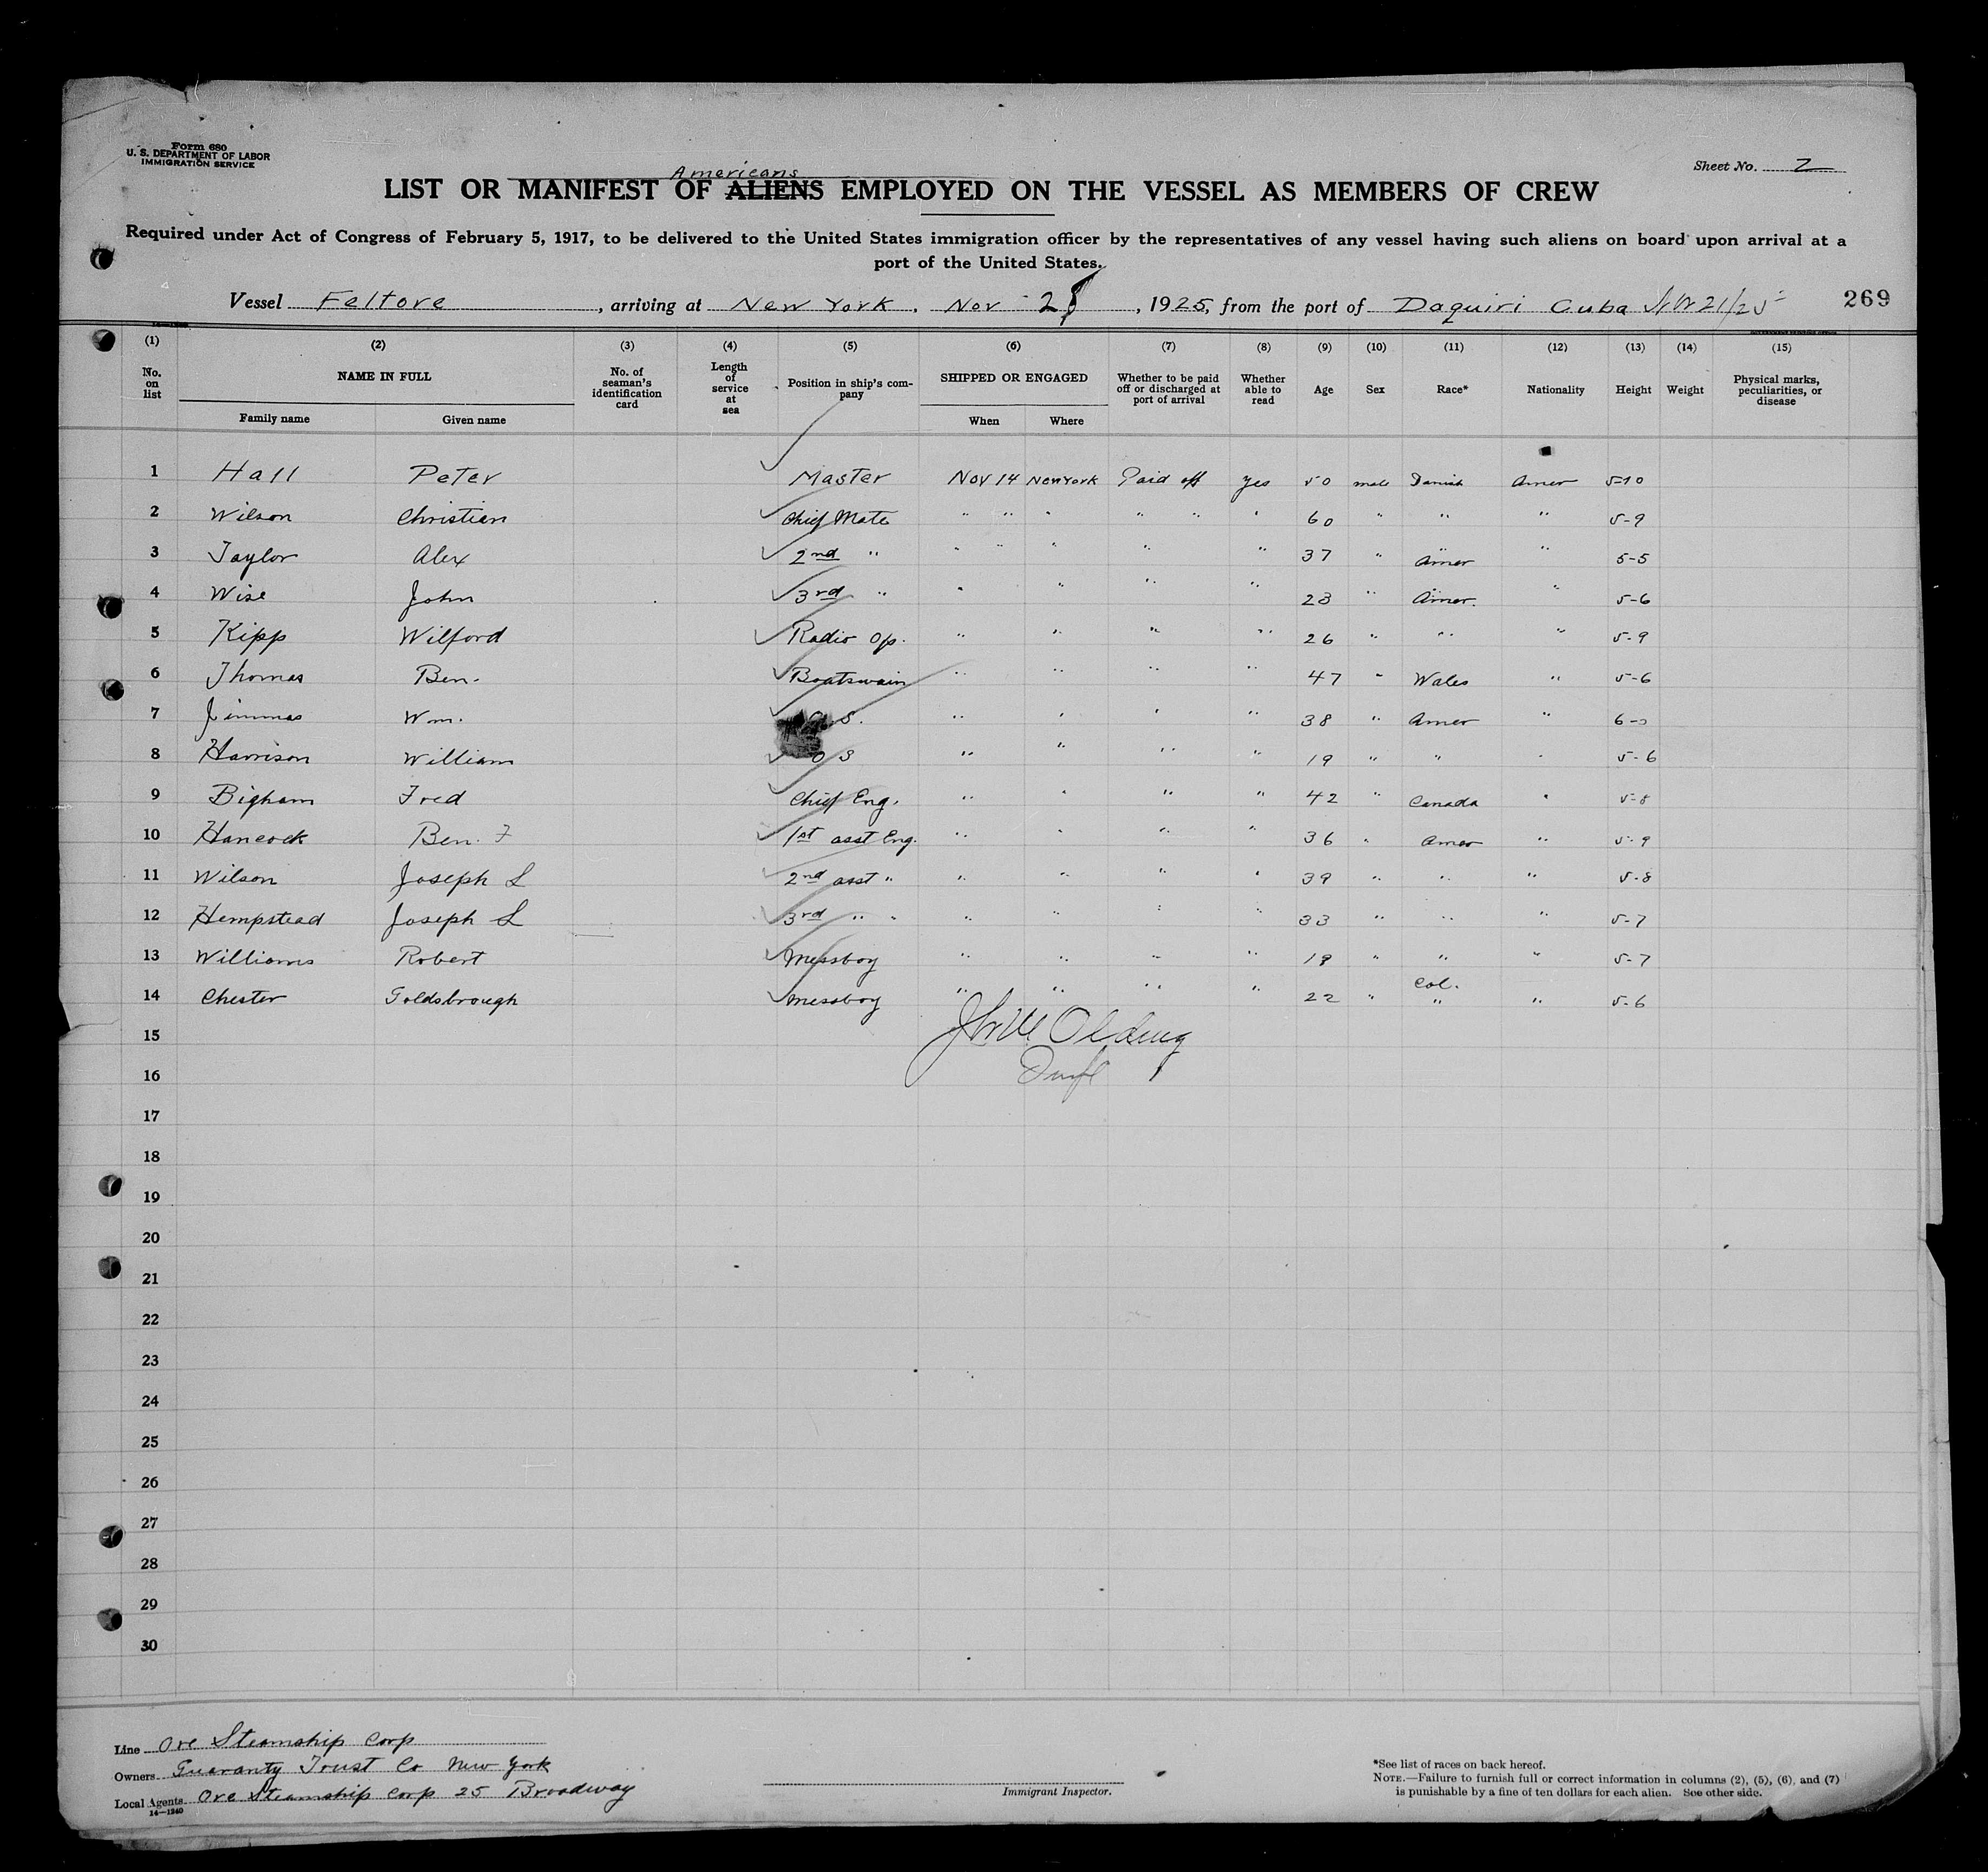 Form 680
U. S. DEPARTMENT OF LABOR
IMMIGRATION SERVICE
Sheet No. 2
Americans
LIST OR MANIFEST OF ALIENS EMPLOYED ON THE VESSEL AS MEMBERS OF CREW
Required under Act of Congress of February 5, 1917, to be delivered to the United States immigration officer by the representatives of any vessel having such aliens on board upon arrival at a
port of the United States.
Vessel Feltore, arriving at New York, Nov 28, 1925, from the port of Daquiri Cuba Nov 21/25 269
(1) (2) (3) (4) (5) (6) (7) (8) (9) (10) (11) (12) (13) (14) (15)
No. on list NAME IN FULL No. of seaman's identification card Length of service at sea Position in ship's company SHIPPED OR ENGAGED Whether to be paid off or discharged at port of arrival Whether able to read Age Sex Race* Nationality Height Weight Physical marks, peculiarities, or disease
Family name Given name When Where
1 Hall Peter Master Nov 14 New York Paid off yes 50 male Danish Amer 5-10
2 Wilson Christian Chief Mate " " " " " " 60 " " " 5-9
3 Taylor Alex 2nd " " " " " " 37 " Amer " 5-5
4 Wise John 3rd " " " " " 23 " Amer. " 5-6
5 Kipp Wilford Radio Op. " " " " 26 " " " 5-9
6 Thomas Ben. Boatswain " " " " 47 " Wales " 5-6
7 Jimmas Wm. S. " " " " 38 " Amer " 6-0
8 Harrison William O S " " " " 19 " " " 5-6
9 Bigham Fred Chief Eng. " " " " 42 " Canada " 5-8
10 Hancock Ben. F 1st asst Eng. " " " " 36 " Amer " 5-9
11 Wilson Joseph L 2nd asst " " " " " 39 " " " 5-8
12 Hempstead Joseph L 3rd " " " " " " 33 " " " 5-7
13 Williams Robert Messboy " " " " 19 " " " 5-7
14 Chester Goldsbrough messboy " " " " 22 " Col. " " 5-6
15 Olding
16
17
18
19
20
21
22
23
24
25
26
27
28
29
30
Line Ore Steamship Corp
Owners Guaranty Trust Co New York
Local Agents Ore Steamship Corp 25 Broadway
14—1240
Immigrant Inspector.
*See list of races on back hereof.
NOTE.—Failure to furnish full or correct information in columns (2), (5), (6), and (7)
is punishable by a fine of ten dollars for each alien. See other side.